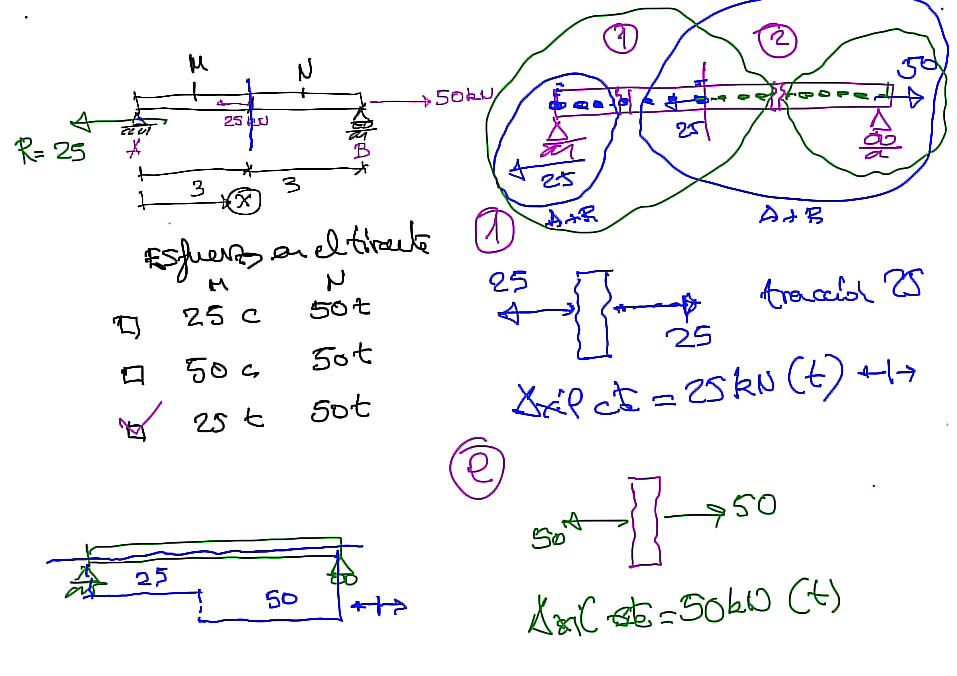 M N
25 kN
50 kN
R= 25
A B
3 3
x
Esfuerzo en el tirante
M N
25 c 50t
50 c 50t
25 t 50t
25
50
1 2
50
25
25
A+B
1
25
25
tracción 25
Axil cte = 25 kN (t)
50
50
Axil cte = 50 kN (t)